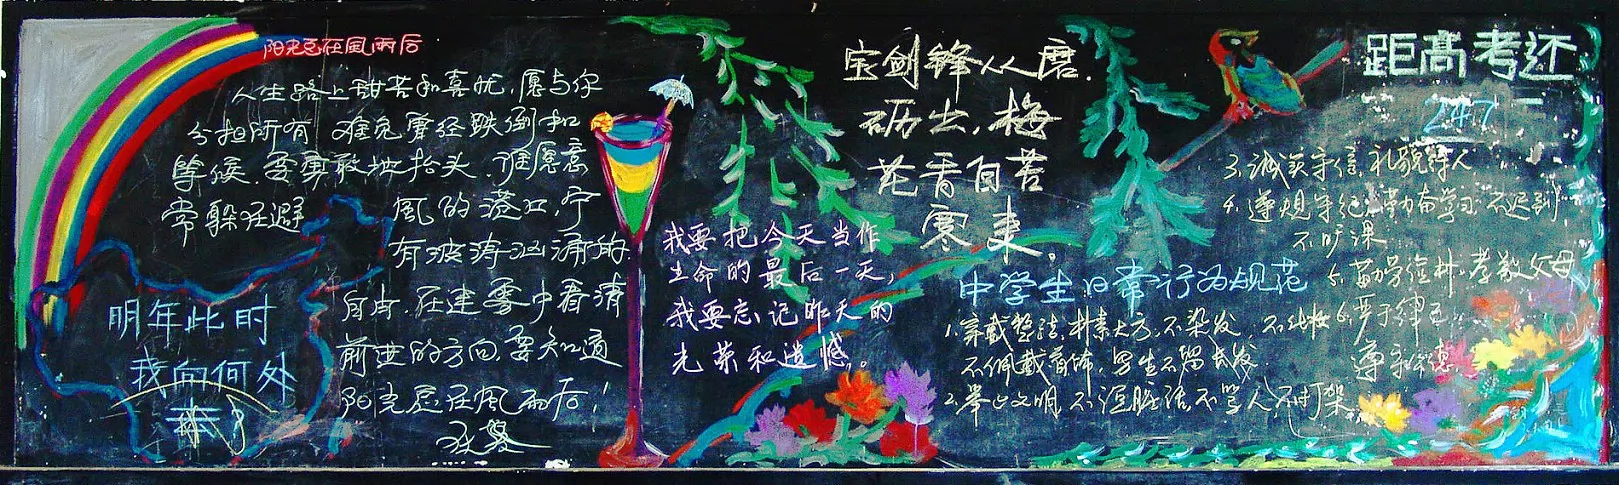 阳光总在風雨后
人生路上甜苦和喜忧,愿与你
分担所有 难免曾经跌倒和
等候.要勇敢地抬头.谁愿意
常躲在避
風的港口,宁
有波涛汹涌的
自由.在建雾中看清
前进的方向.要知道
阳光总在風雨后!
明年此时
我向何处
我要把今天当作
生命的最后一天,
我要忘记昨天的
光荣和遗憾。
宝剑锋从磨.
砺出,梅
花香自苦
寒来。
距高考还
247
中学生日常行为规范
1.穿戴整洁,朴素大方,不染发、不化妆
不佩戴首饰,男生不留长发
2.举止文明,不说脏话,不骂人,不打架
3.诚实守信,礼貌待人
4.遵规守纪,勤奋学习 不迟到
不旷课
5.勤劳俭朴.孝敬父母
6.严于律己
遵守公德